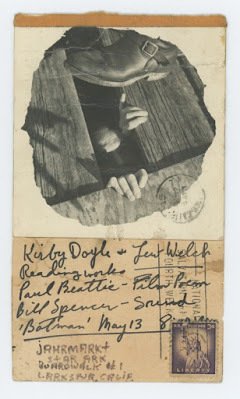 Kirby Doyle + Lew Welch
Reading works
Paul Beattie - Film Poem
Bill Spencer - Sound
'Batman' May 13
JAHRMARKT
STAR ARK
BOARDWALK #1
LARKSPUR, CALIF.
3¢
LIBERTY